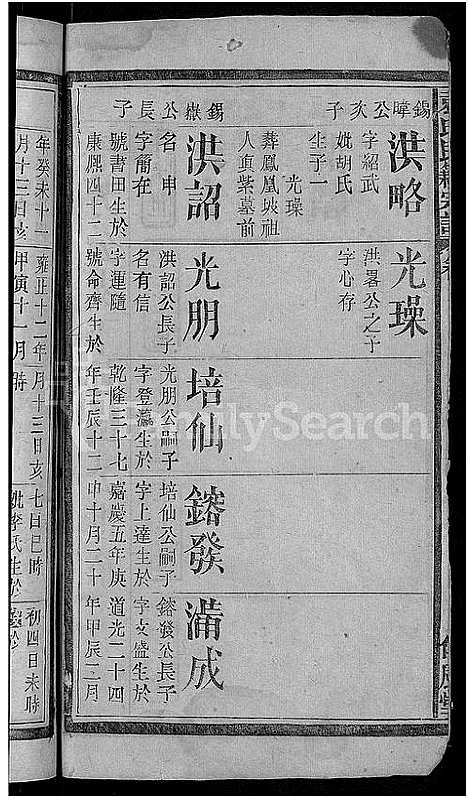 錫暐公次子
洪略
字紹武
妣胡氏
生子一
光璪
葬鳳凰垅祖
人頁紫墓前
光璪
洪畧公之子
字心存
錫嶽公長子
洪詔
名申
字簡在
號書田生於
康熙四十二
光朋
洪詔公長子
名有信
字運隨
號命齊生於
培仙
光朋公嗣子
字登瀛生於
乾隆三十七
年壬辰十二
鎔發
培仙公嗣子
字上達生於
嘉慶五年庚
申十月二十
滿成
鎔發公長子
字文盛生於
道光二十四
年甲辰二月
年癸未十一
月十三日亥
雍正十二年
甲寅十一月
月十三日亥
時
七日巳時
妣李氏生於
初四日未時
FamilySearch